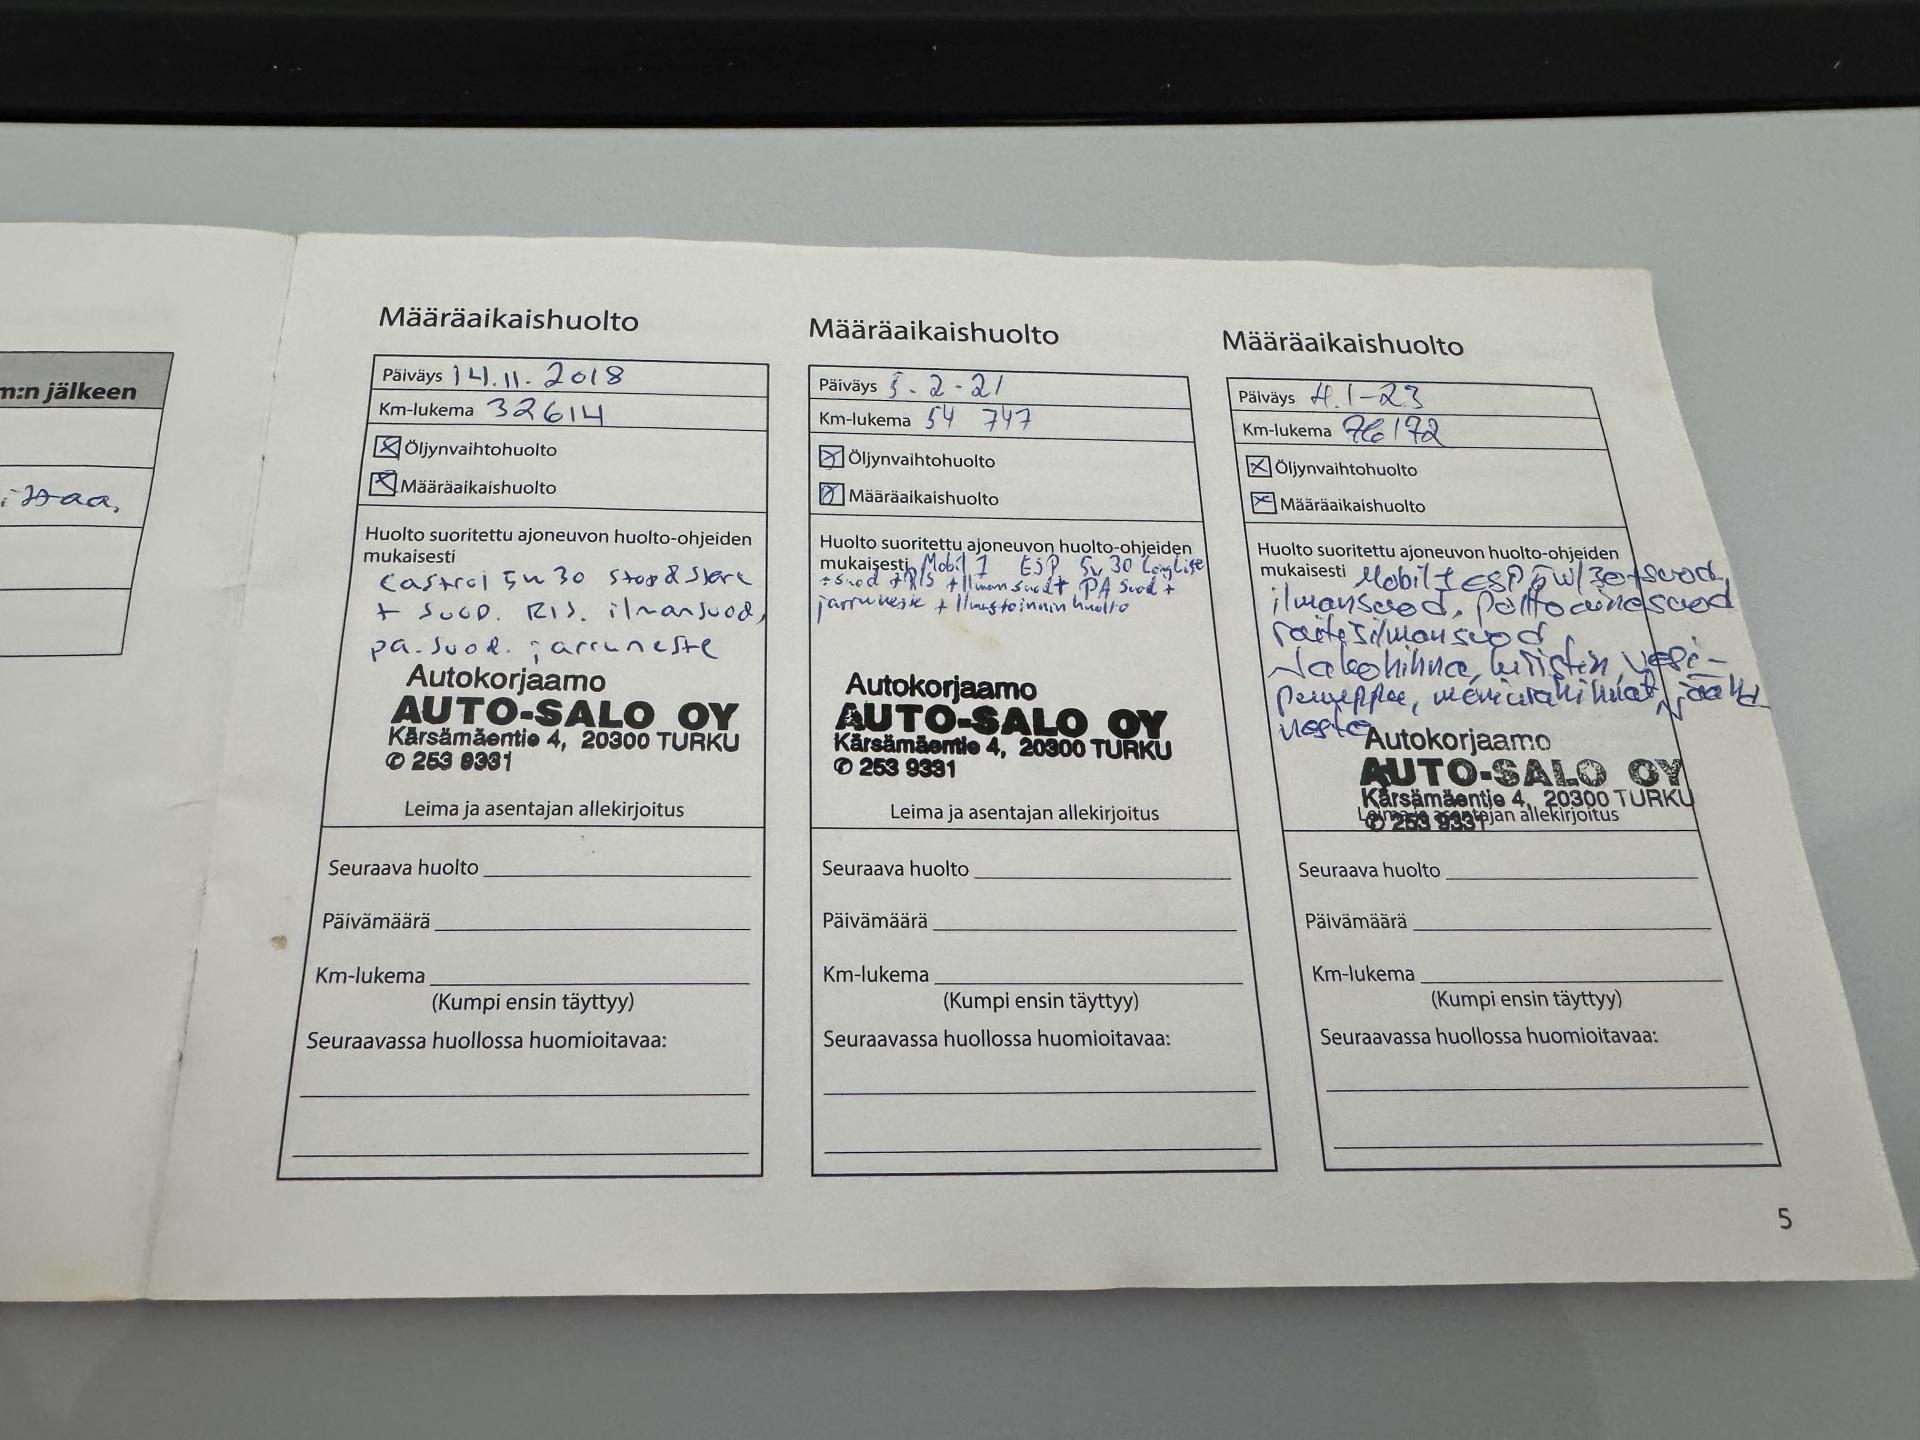 m:n jälkeen
Määräaikaishuolto
Päiväys 14.11.2018
Km-lukema 32614
Öljynvaihtohuolto
Määräaikaishuolto
Huolto suoritettu ajoneuvon huolto-ohjeiden
mukaisesti
Castrol 5w30 stop&start
+ suod. RIS. ilmansuod,
pa. suod. jarruneste
Autokorjaamo
AUTO-SALO OY
Kärsämäentie 4, 20300 TURKU
✆ 253 9331
Leima ja asentajan allekirjoitus
Seuraava huolto
Päivämäärä
Km-lukema
(Kumpi ensin täyttyy)
Seuraavassa huollossa huomioitavaa:
Määräaikaishuolto
Päiväys 5.2-21
Km-lukema 54 747
Öljynvaihtohuolto
Määräaikaishuolto
Huolto suoritettu ajoneuvon huolto-ohjeiden
mukaisesti Mobil 1 ESP 5w30 Longlife
+suod +RIS + Ilmansuod+ PA suod +
jarruneste + Ilmastoinnin huolto
Autokorjaamo
AUTO-SALO OY
Kärsämäentie 4, 20300 TURKU
✆ 253 9331
Leima ja asentajan allekirjoitus
Seuraava huolto
Päivämäärä
Km-lukema
(Kumpi ensin täyttyy)
Seuraavassa huollossa huomioitavaa:
Määräaikaishuolto
Päiväys 4.1-23
Km-lukema 76172
Öljynvaihtohuolto
Määräaikaishuolto
Huolto suoritettu ajoneuvon huolto-ohjeiden
mukaisesti Mobil 1 ESP 5W/30+suod,
ilmansuod, polttoainesuod
raitisilmansuod
Jakohihna, kiristin, vesi-
pumppu, moniurahihnat, jäähd
neste
Autokorjaamo
AUTO-SALO OY
Kärsämäentie 4, 20300 TURKU
Leima ja asentajan allekirjoitus
✆ 253 9331
Seuraava huolto
Päivämäärä
Km-lukema
(Kumpi ensin täyttyy)
Seuraavassa huollossa huomioitavaa:
5